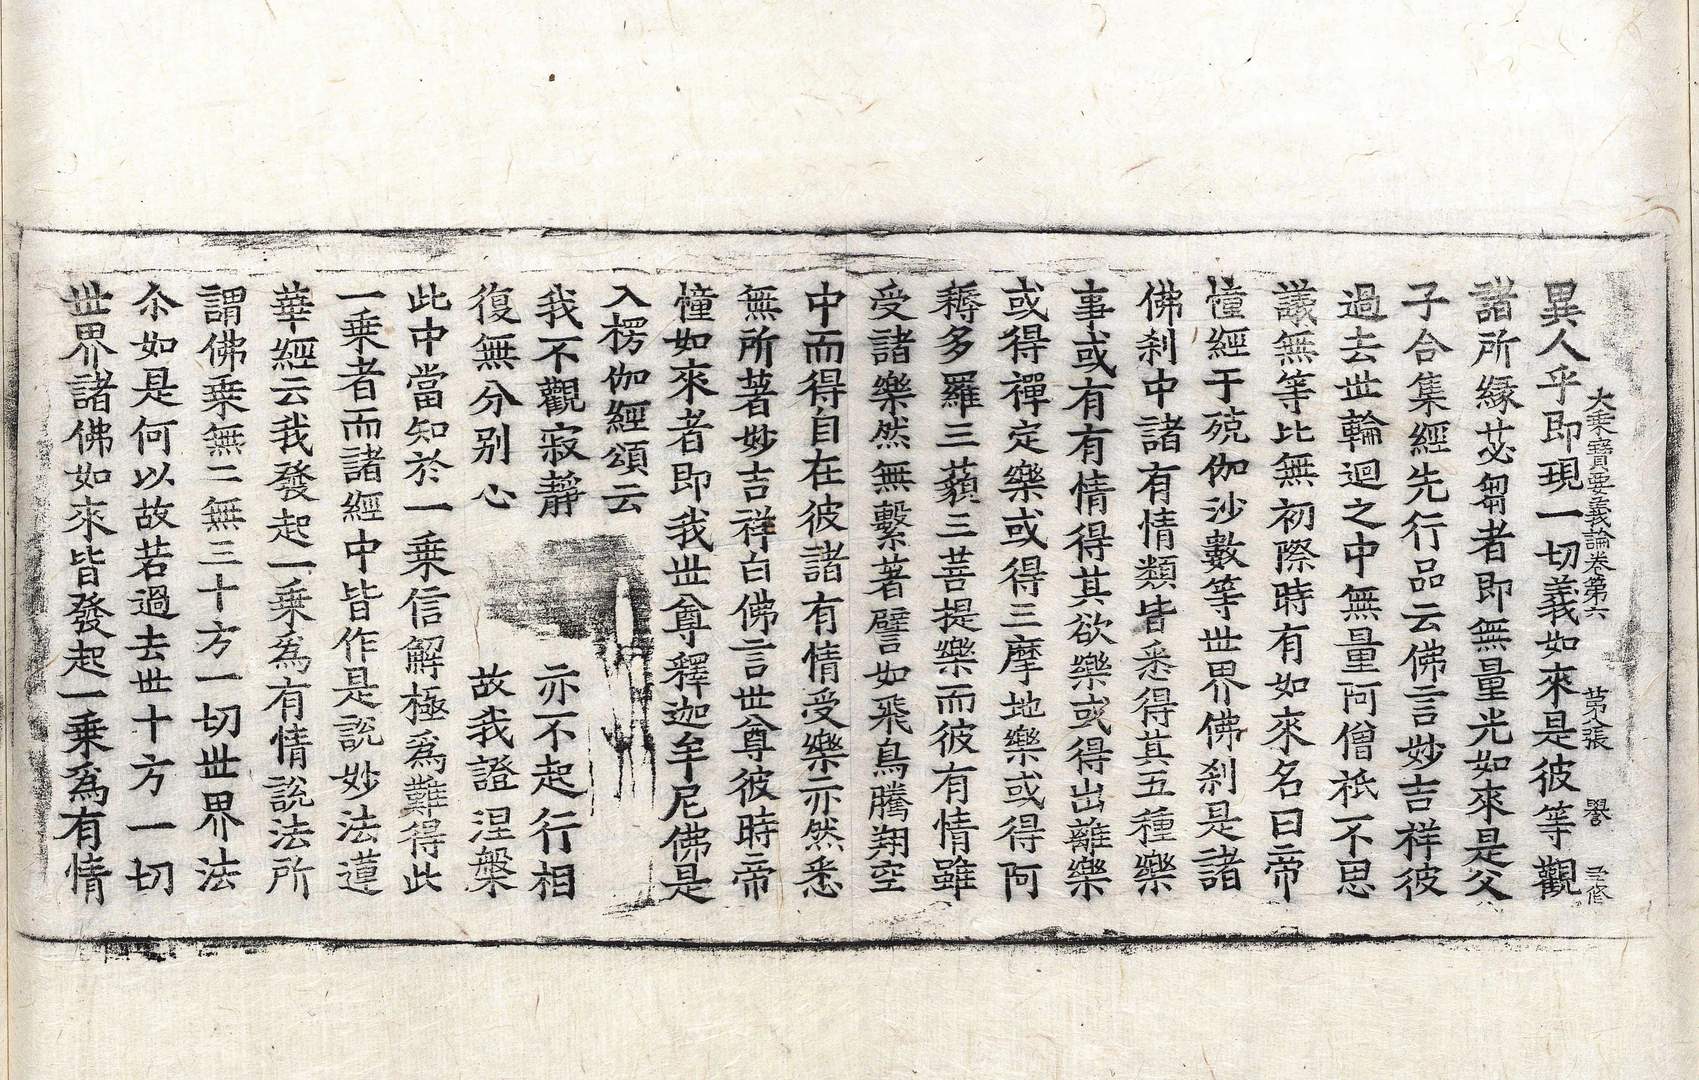 大乘寶要義論卷第六 第八張 譽
異人乎即現一切義如來是彼等觀
諸所緣苾芻者即無量光如來是父
子合集經先行品云佛言妙吉祥彼
過去世輪迴之中無量阿僧祇不思
議無等比無初際時有如來名曰帝
憧經于殑伽沙數等世界佛刹是諸
佛刹中諸有情類皆悉得其五種樂
事或有有情得其欲樂或得出離樂
或得禪定樂或得三摩地樂或得阿
耨多羅三藐三菩提樂而彼有情雖
受諸樂然無繫著譬如飛鳥騰翔空
中而得自在彼諸有情受樂亦然悉
無所著妙吉祥白佛言世尊彼時帝
憧如來者即我世尊釋迦牟尼佛是
入楞伽經頌云
我不觀寂靜 亦不起行相
復無分別心 故我證涅槃
此中當知於一乘信解極爲難得此
一乘者而諸經中皆作是說妙法蓮
華經云我發起一乘爲有情說法所
謂佛乘無二無三十方一切世界法
尒如是何以故若過去世十方一切
世界諸佛如來皆發起一乘爲有情